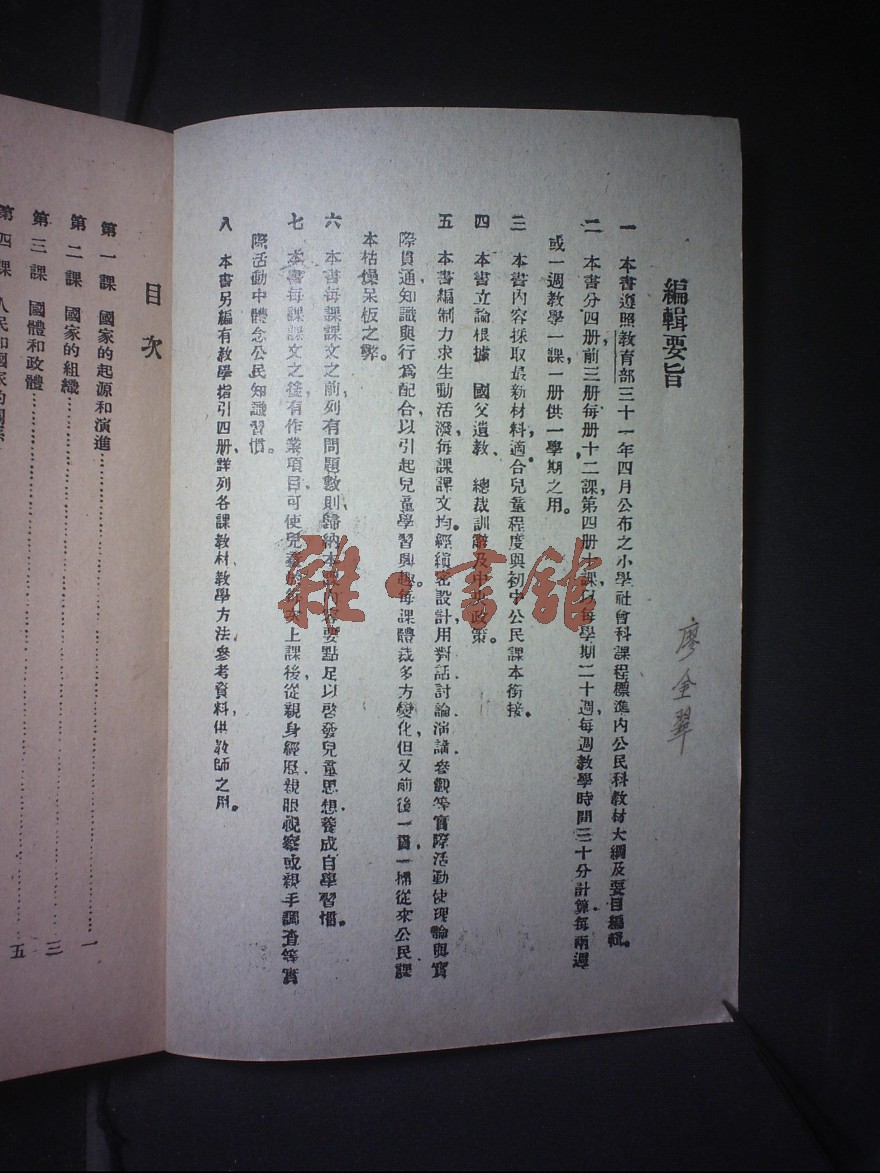 編輯要旨
一　本書遵照教育部三十一年四月公布之小學社會科課程標準內公民科教材大綱及要目編輯。
二　本書分四册，前三册每册十二課，第四册十課，以每學期二十週，每週教學時間三十分計算，每兩週
或一週教學一課，一册供一學期之用。
三　本書內容採取最新材料，適合兒童程度，與初中公民課本銜接。
四　本書立論根據　國父遺教、　總裁訓辭及中央政策。
五　本書編制力求生動活潑，每課課文，均經縝密設計，用對話討論演講參觀等實際活動，使理論與實
際貫通，知識與行爲配合，以引起兒童學習興趣。每課體裁，多方變化，但又前後一貫，一掃從來公民課
本枯燥呆板之弊。
六　本書每課課文之前，列有問題數則，歸納本課內容要點，足以啓發兒童思想，養成自學習慣。
七　本書每課課文之後，有作業項目，可使兒童於每次上課後，從親身經歷親眼視察或親手調查等實
際活動中，體念公民知識習慣。
八　本書另編有教學指引四册，詳列各課教材教學方法參考資料，供教師之用。
廖金翠
雜·書館
目次
第一課　國家的起源和演進……一
第二課　國家的組織……三
第三課　國體和政體……五
第四課　人民和國家的關係